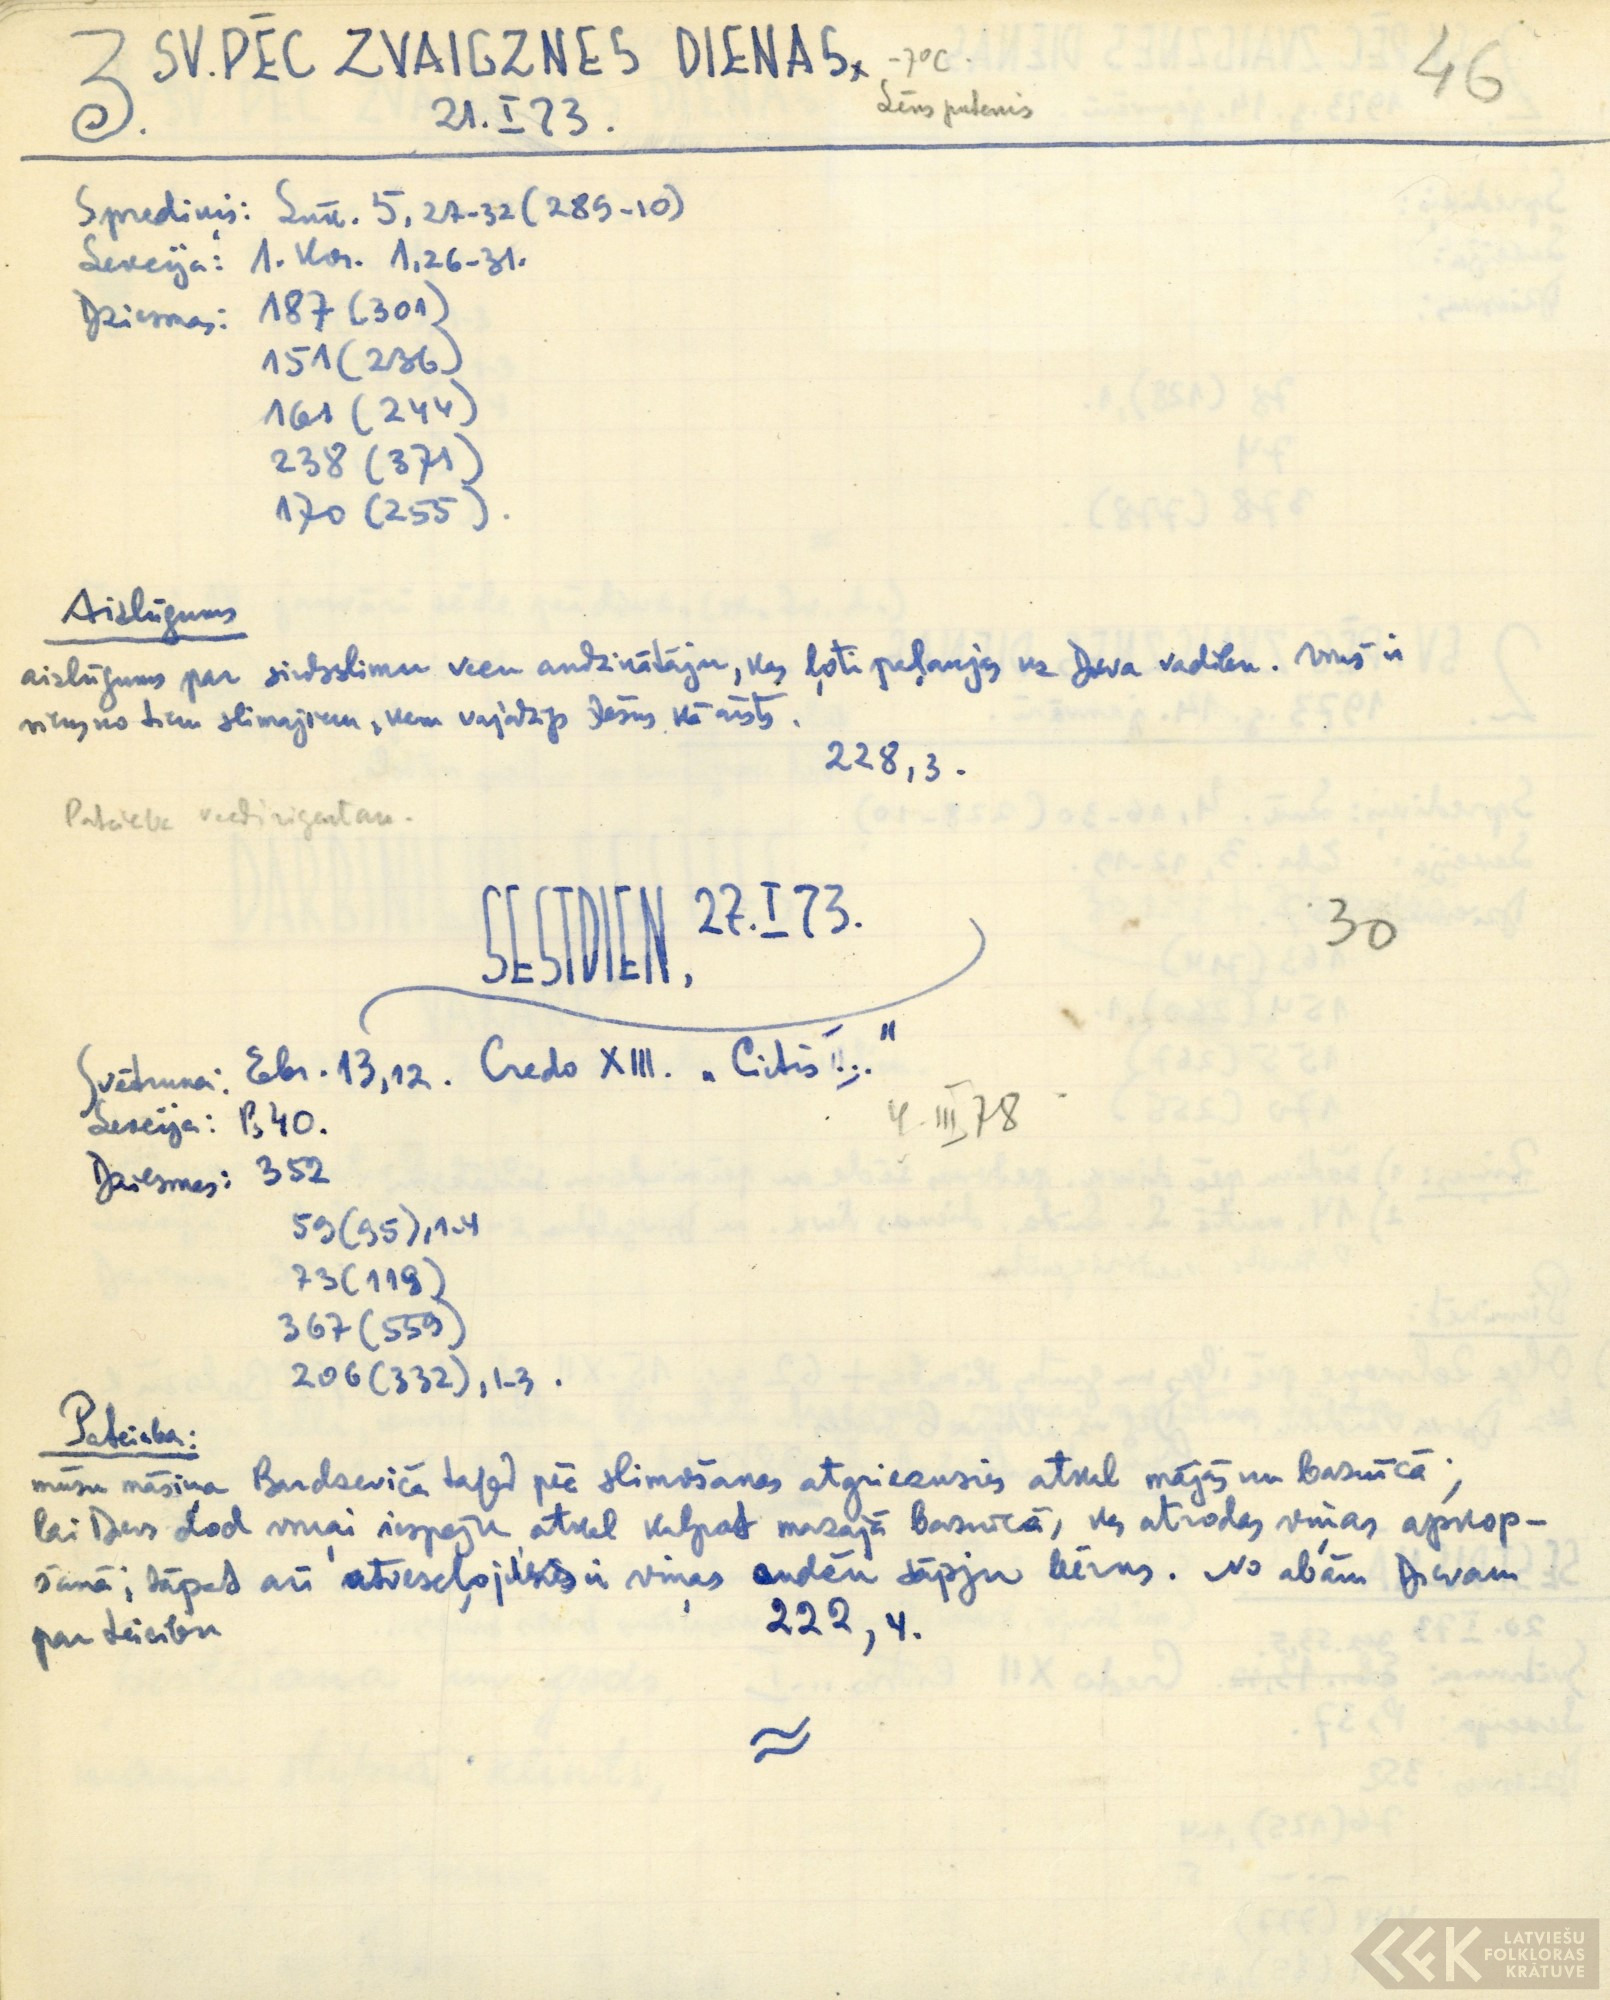 3. SV. PĒC ZVAIGZNES DIENAS, -7°C. 46
21. I 73. Lēns putenis
Sprediķis: Lūk. 5, 27-32 (289-10)
Lekcija: 1. Kor. 1, 26-31.
Dziesmas: 187 (301)
151 (236)
161 (244)
238 (371)
170 (255).
Aizlūgums
aizlūgums par sirdsslimu vecu audzinātāju, kas ļoti paļaujas uz Dieva vadību. Viņš ir
viens no tiem slimajiem, kam vajadzīgs Jēzus kā ārsts.
228, 3.
Pateicība
SESTDIEN, 27. I 73. 30
Svētruna: Ebr. 13, 12. Credo XIII. „Cietis II..."
4. III 78
Lekcija: Ps 40.
Dziesmas: 352
59 (95), 1-4
73 (119)
367 (559)
206 (332), 1-3.
Pateicība:
mūsu māsiņa Bardzeviča tagad pēc slimošanas atgriezusies atkal mājās un baznīcā;
lai Dievs dod viņai iespēju atkal kalpot mazajā baznīcā, kas atrodas viņas apkop-
šanā; tāpat arī atveseļojusies ir viņas sāpju bērns. No abām Dievam
par teicību 222, 4.
≈
LATVIEŠU
FOLKLORAS
KRĀTUVE